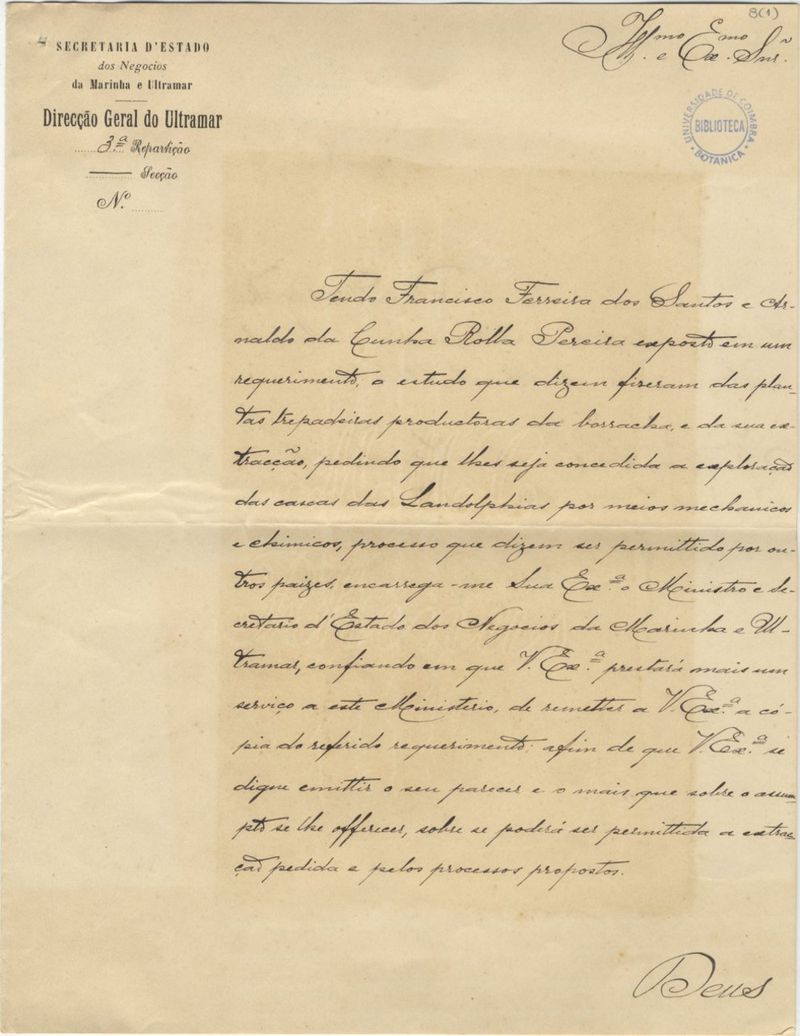 8(1)
SECRETARIA D'ESTADO
dos Negocios
da Marinha e Ultramar
Direcção Geral do Ultramar
3.ª Repartição
Secção
N.º
Ill.mo e Ex.mo Snr.
UNIVERSIDADE DE COIMBRA
BIBLIOTECA
BOTANICA
Tendo Francisco Ferreira dos Santos e Ar-
naldo da Cunha Rolla Pereira exposto em um
requerimento, o estudo que dizem fizeram das plan-
tas trepadeiras productoras da borracha, e da sua ex-
tracção, pedindo que lhes seja concedida a exploração
das cascas das Landolphias por meios mechanicos
e chimicos, processo que dizem ser permittido por ou-
tros paizes, encarrega-me Sua Ex.ª o Ministro e Se-
cretario d'Estado dos Negocios da Marinha e Ul-
tramar, confiando em que V. Ex.ª prestará mais um
serviço a este Ministerio, de remetter a V. Ex.ª a có-
pia do referido requerimento, afim de que V. Ex.ª se
digne emittir o seu parecer e o mais que sobre o assum-
pto se lhe offerecer, sobre se poderá ser permittida a extrac-
ção pedida e pelos processos propostos.
Deus